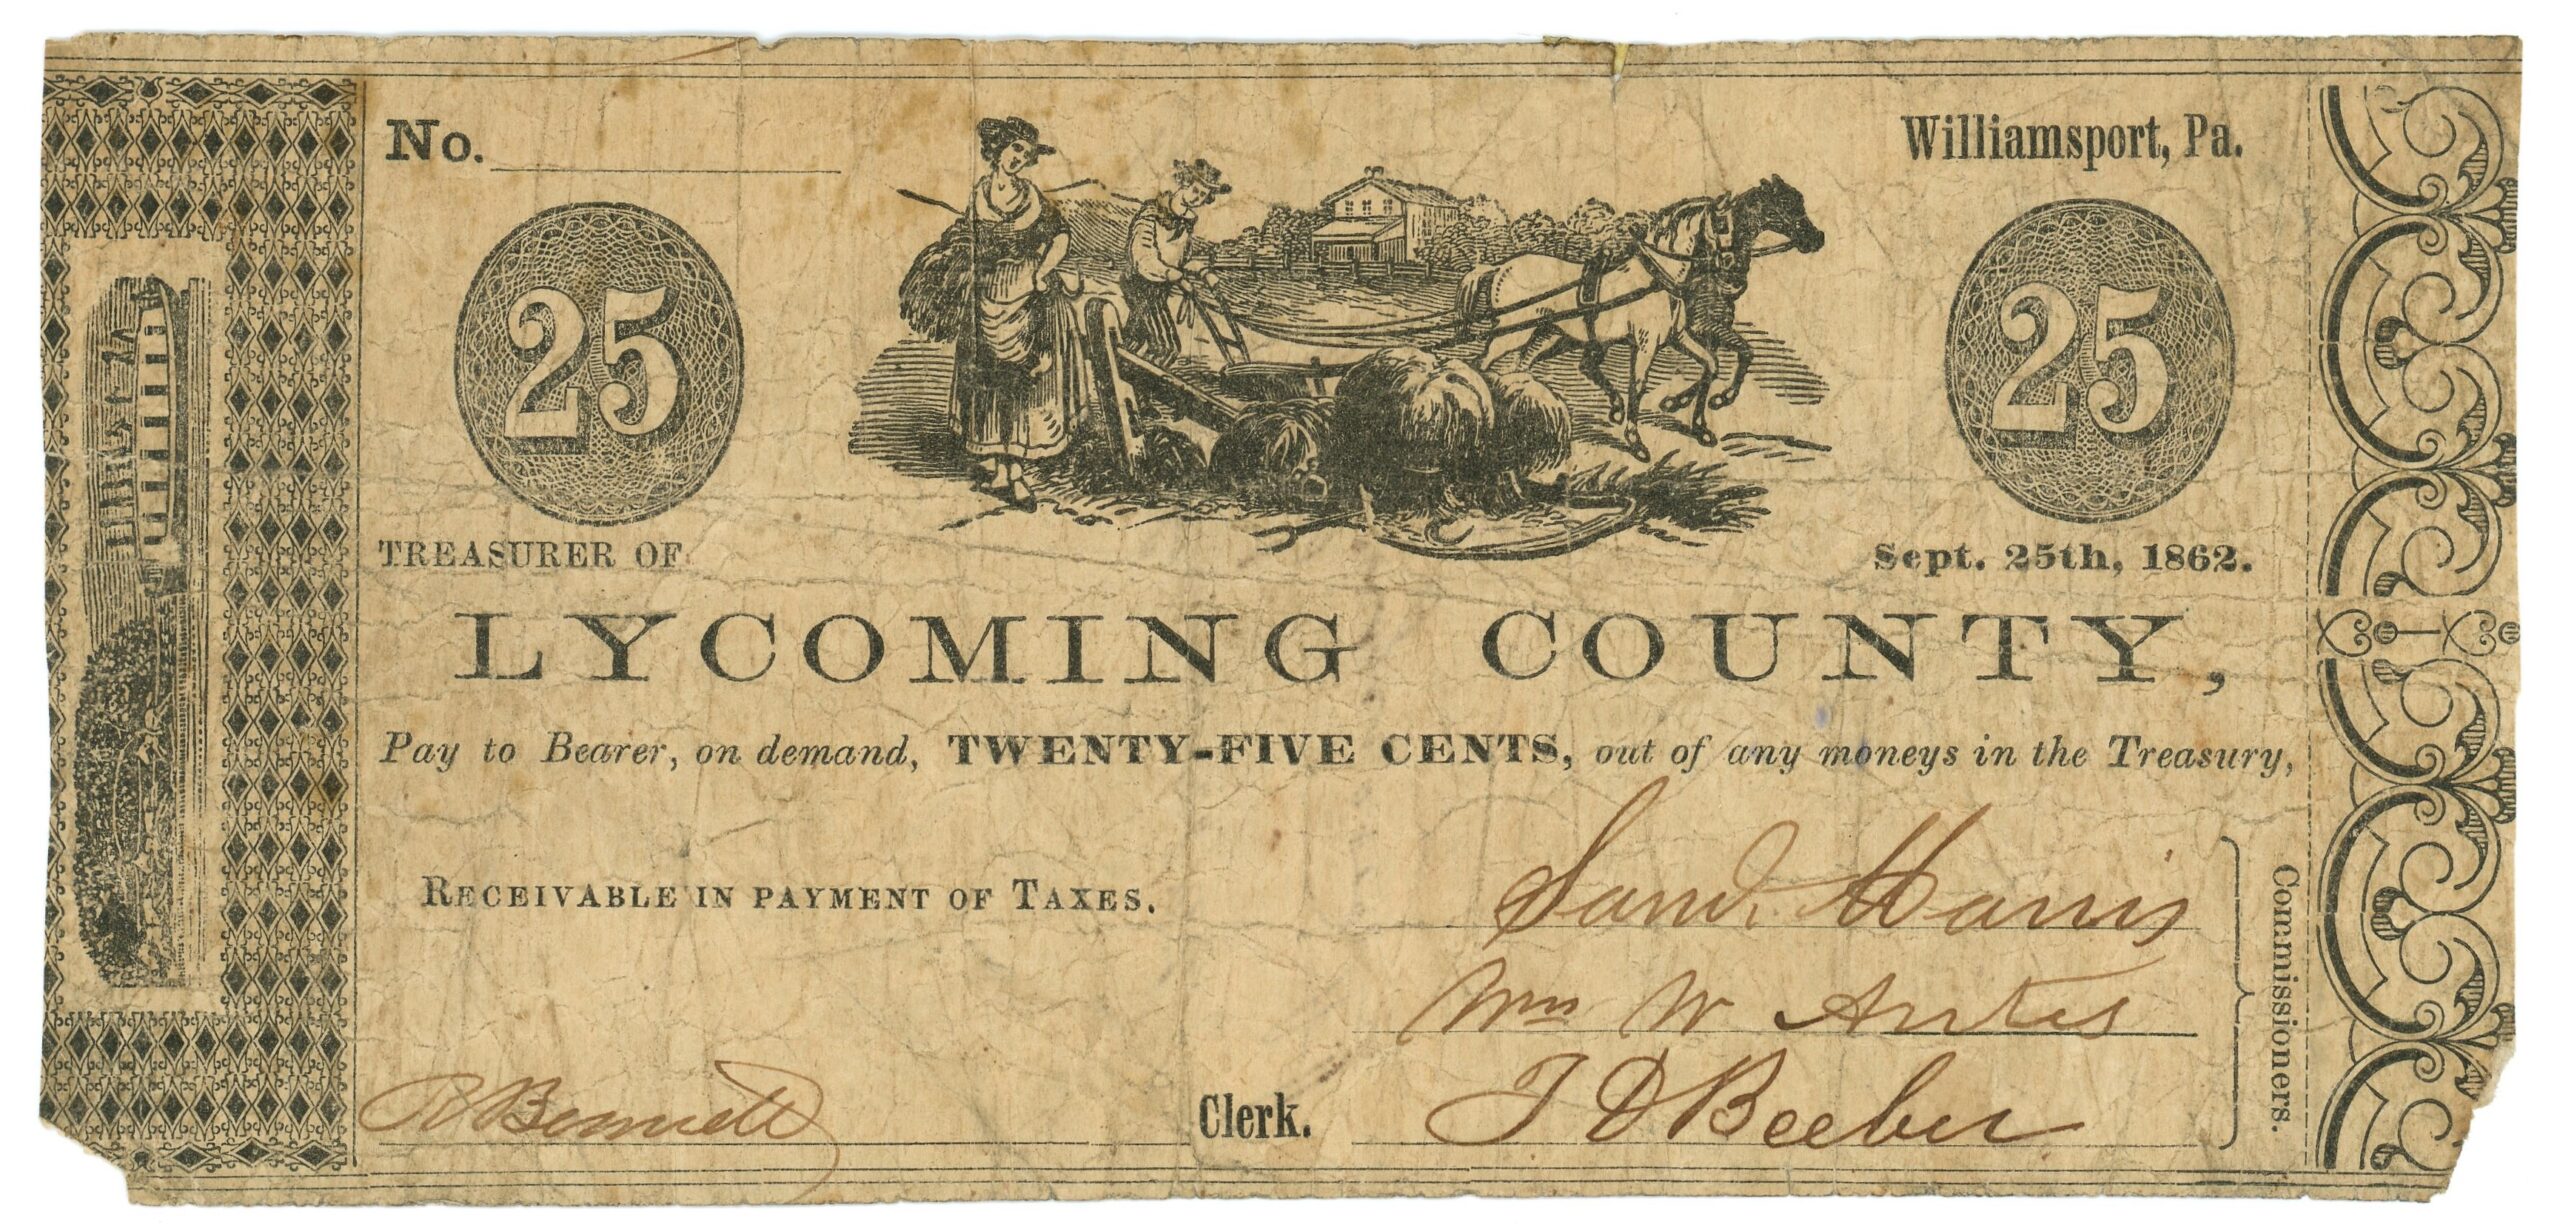 No.
Williamsport, Pa.
25
25
TREASURER OF
Sept. 25th, 1862.
LYCOMING COUNTY,
Pay to Bearer, on demand, TWENTY-FIVE CENTS, out of any moneys in the Treasury,
RECEIVABLE IN PAYMENT OF TAXES.
Saml. Harris
Wm W Antes
T D Beeber
Commissioners.
R Bennett
Clerk.